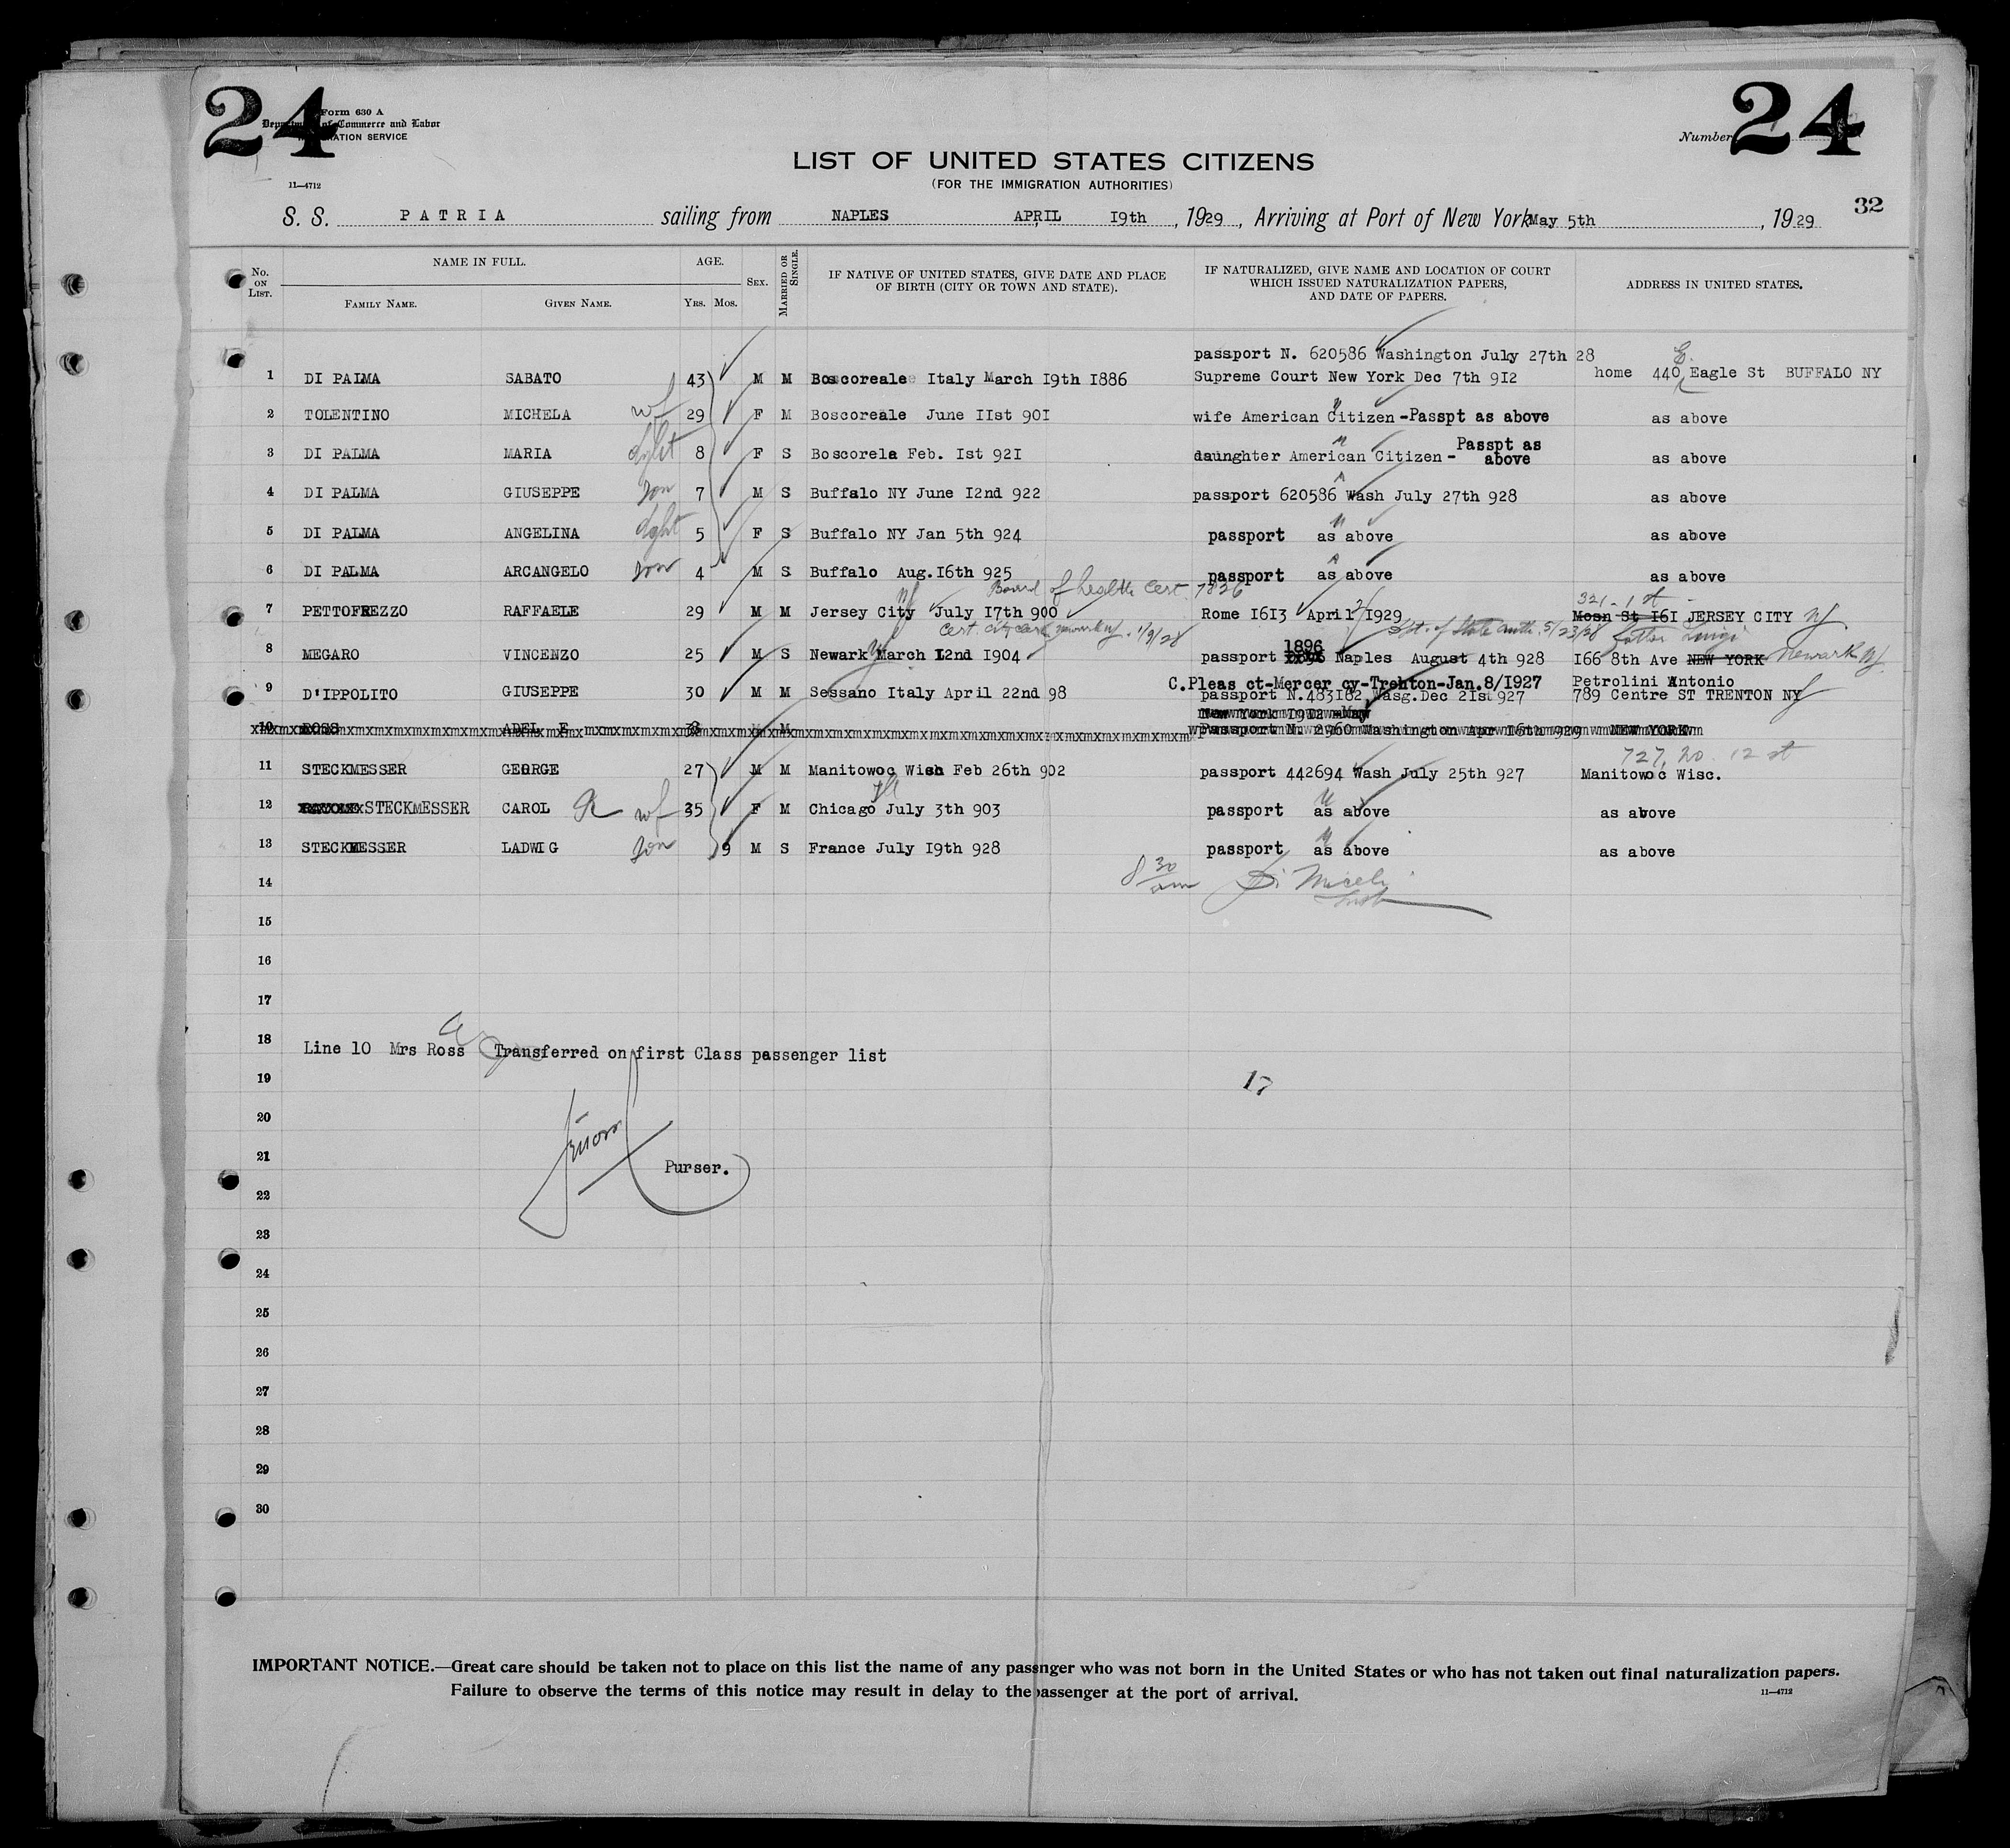 24
Form 630 A
Department of Commerce and Labor
IMMIGRATION SERVICE
11—4712
Number 24
LIST OF UNITED STATES CITIZENS
(FOR THE IMMIGRATION AUTHORITIES)
32
S. S. PATRIA sailing from NAPLES APRIL, 19th, 1929, Arriving at Port of New York May 5th, 1929
No. ON LIST. NAME IN FULL. FAMILY NAME. GIVEN NAME. AGE. YRS. MOS. SEX. MARRIED OR SINGLE. IF NATIVE OF UNITED STATES, GIVE DATE AND PLACE OF BIRTH (CITY OR TOWN AND STATE). IF NATURALIZED, GIVE NAME AND LOCATION OF COURT WHICH ISSUED NATURALIZATION PAPERS, AND DATE OF PAPERS. ADDRESS IN UNITED STATES.
passport N. 620586 Washington July 27th 28
1 DI PALMA SABATO 43 M M Boscoreale Italy March I9th I886 Supreme Court New York Dec 7th 9I2 home 440 E. Eagle St BUFFALO NY
2 TOLENTINO MICHELA wf 29 F M Boscoreale June IIst 90I wife American Citizen-Passpt as above as above
3 DI PALMA MARIA dght 8 F S Boscorela Feb. Ist 92I daunghter American Citizen- Passpt as above as above
4 DI PALMA GIUSEPPE son 7 M S Buffalo NY June I2nd 922 passport 620586 Wash July 27th 928 as above
5 DI PALMA ANGELINA dght 5 F S Buffalo NY Jan 5th 924 passport as above as above
6 DI PALMA ARCANGELO son 4 M S Buffalo Aug.I6th 925 passport as above as above
Board of health Cert. 7826
321 - 1 st
7 PETTOFREZZO RAFFAELE 29 M M Jersey City NJ July I7th 900 Rome I6I3 April 2/I929 Mosn St I6I JERSEY CITY NJ
Cert. city clerk Newark NJ. 1/9/28 Dpt. of State auth. 5/23/28 Luigi
8 MEGARO VINCENZO 25 M S Newark NJ March I2nd I904 passport 1896 Naples August 4th 928 I66 8th Ave NEW YORK Newark NJ
C.Pleas ct-Mercer cy-Trenton-Jan.8/I927 Petrolini Antonio
9 D'IPPOLITO GIUSEPPE 30 M M Sessano Italy April 22nd 98 passport N.483I82 Wasg.Dec 2Ist 927 789 Centre ST TRENTON NJ
New York I9I2 -May
10 ROSS ADEL E 38 M Passport N. 2960 Washington Apr I6th 929 NEW YORK
727 no. 12 st
11 STECKMESSER GEORGE 27 M M Manitowoc Wisc Feb 26th 902 passport 442694 Wash July 25th 927 Manitowoc Wisc.
12 STECKMESSER CAROL R wf 35 F M Chicago Ill July 3th 903 passport as above as above
13 STECKMESSER LADWIG son 9 M S France July I9th 928 passport as above as above
14 8 30 am
15
16
17
18 Line 10 Mrs Ross Transferred on first Class passenger list
19 17
20
21 Purser.
22
23
24
25
26
27
28
29
30
IMPORTANT NOTICE.—Great care should be taken not to place on this list the name of any passnger who was not born in the United States or who has not taken out final naturalization papers.
Failure to observe the terms of this notice may result in delay to the passenger at the port of arrival.
11—4712